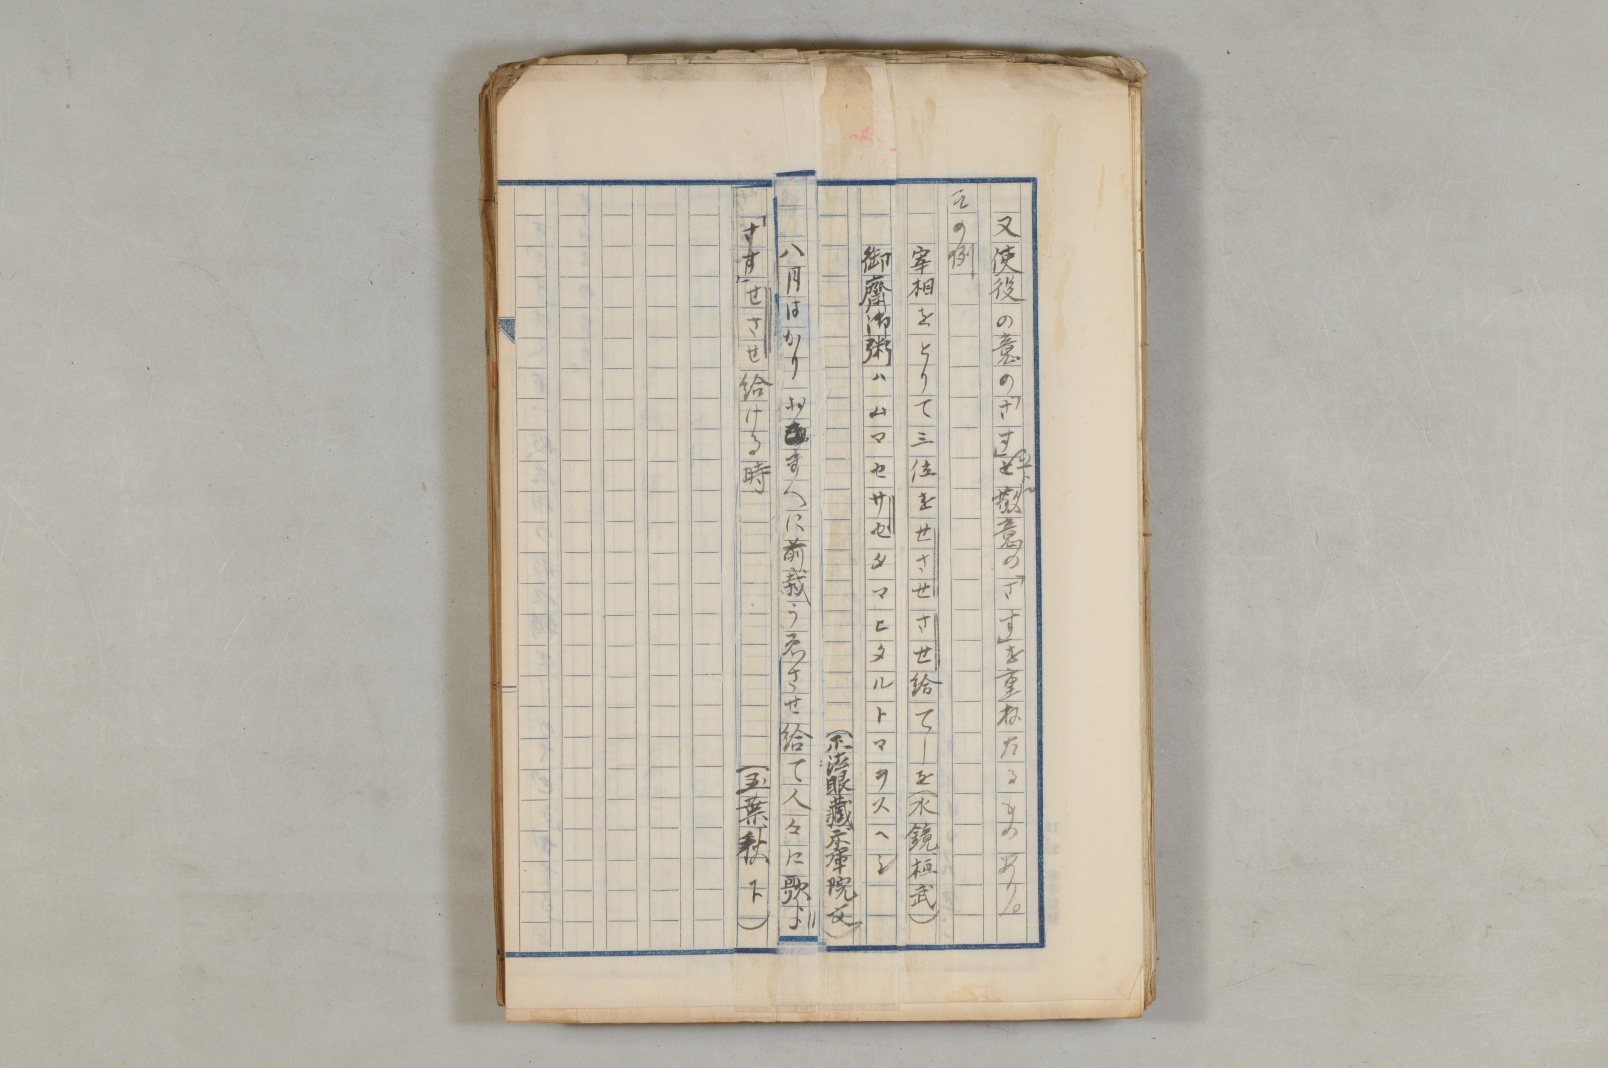 又使役の意の「さす」と敬意の「さす」を重ねたるものあり。
その例
宰相をとりて三位をせさせさせ給てしを(水鏡桓武)
御齋御粥ハムマセサセタマヒタルトマヲスヘシ
(正法眼藏示庫院文)
八月はかりおまへに前栽うゑさせ給て人々に歌よ
「す」せさせ給ける時
(玉葉秋下)